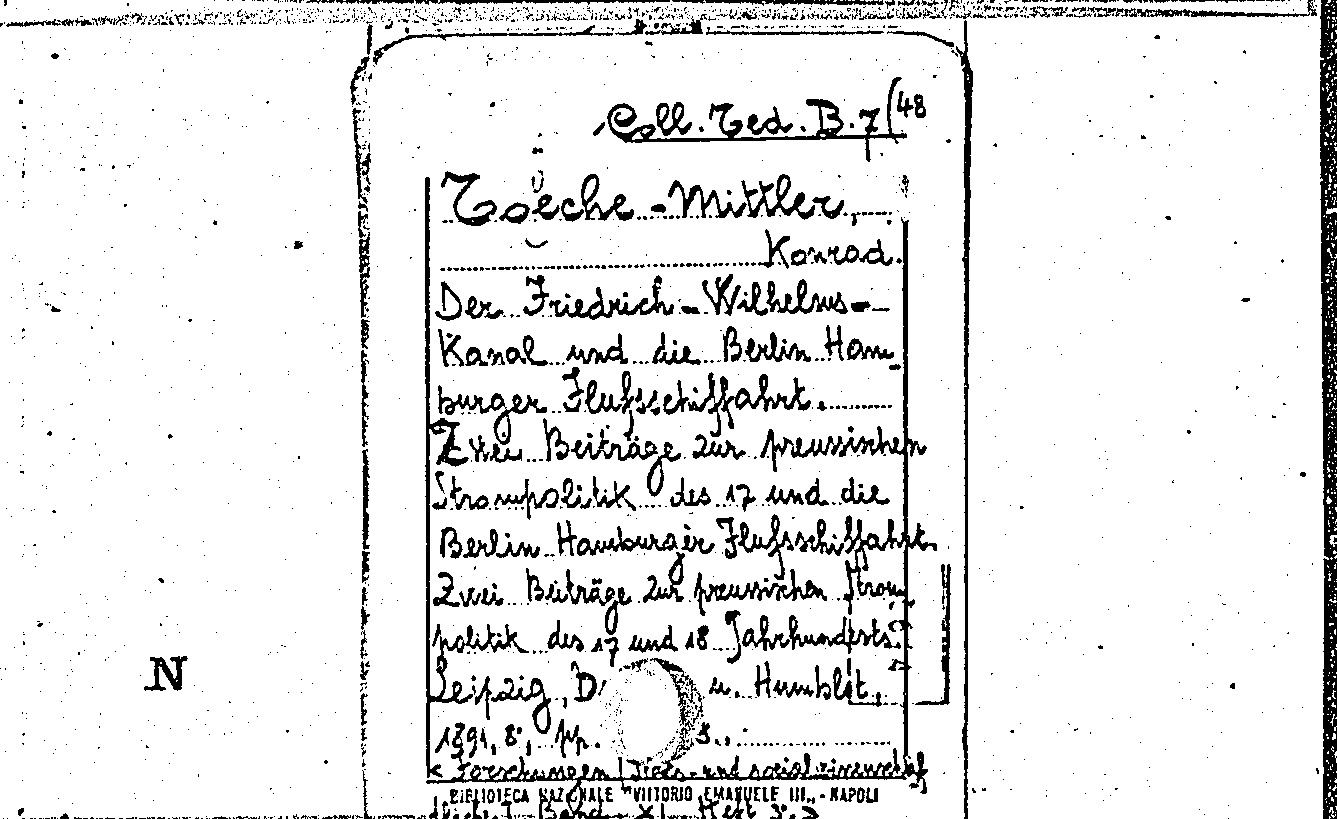 Coll. Ted. B. 7(48
Toeche-Mittler,
Konrad.
Der Friedrich-Wilhelms-
Kanal und die Berlin Ham-
burger Flufsschiffahrt.
Zwei Beiträge zur preussischen
Strompolitik des 17 und die
Berlin Hamburger Flufsschiffahrt.
Zwei Beiträge zur preussischen Strom-
politik des 17 und 18 Jahrhunderts.
Leipzig, u. Humblot,
1891, 8°, pp.
< Forschungen
BIBLIOTECA NAZIONALE "VITTORIO EMANUELE III„ - NAPOLI
Band XI Heft 3.>
N